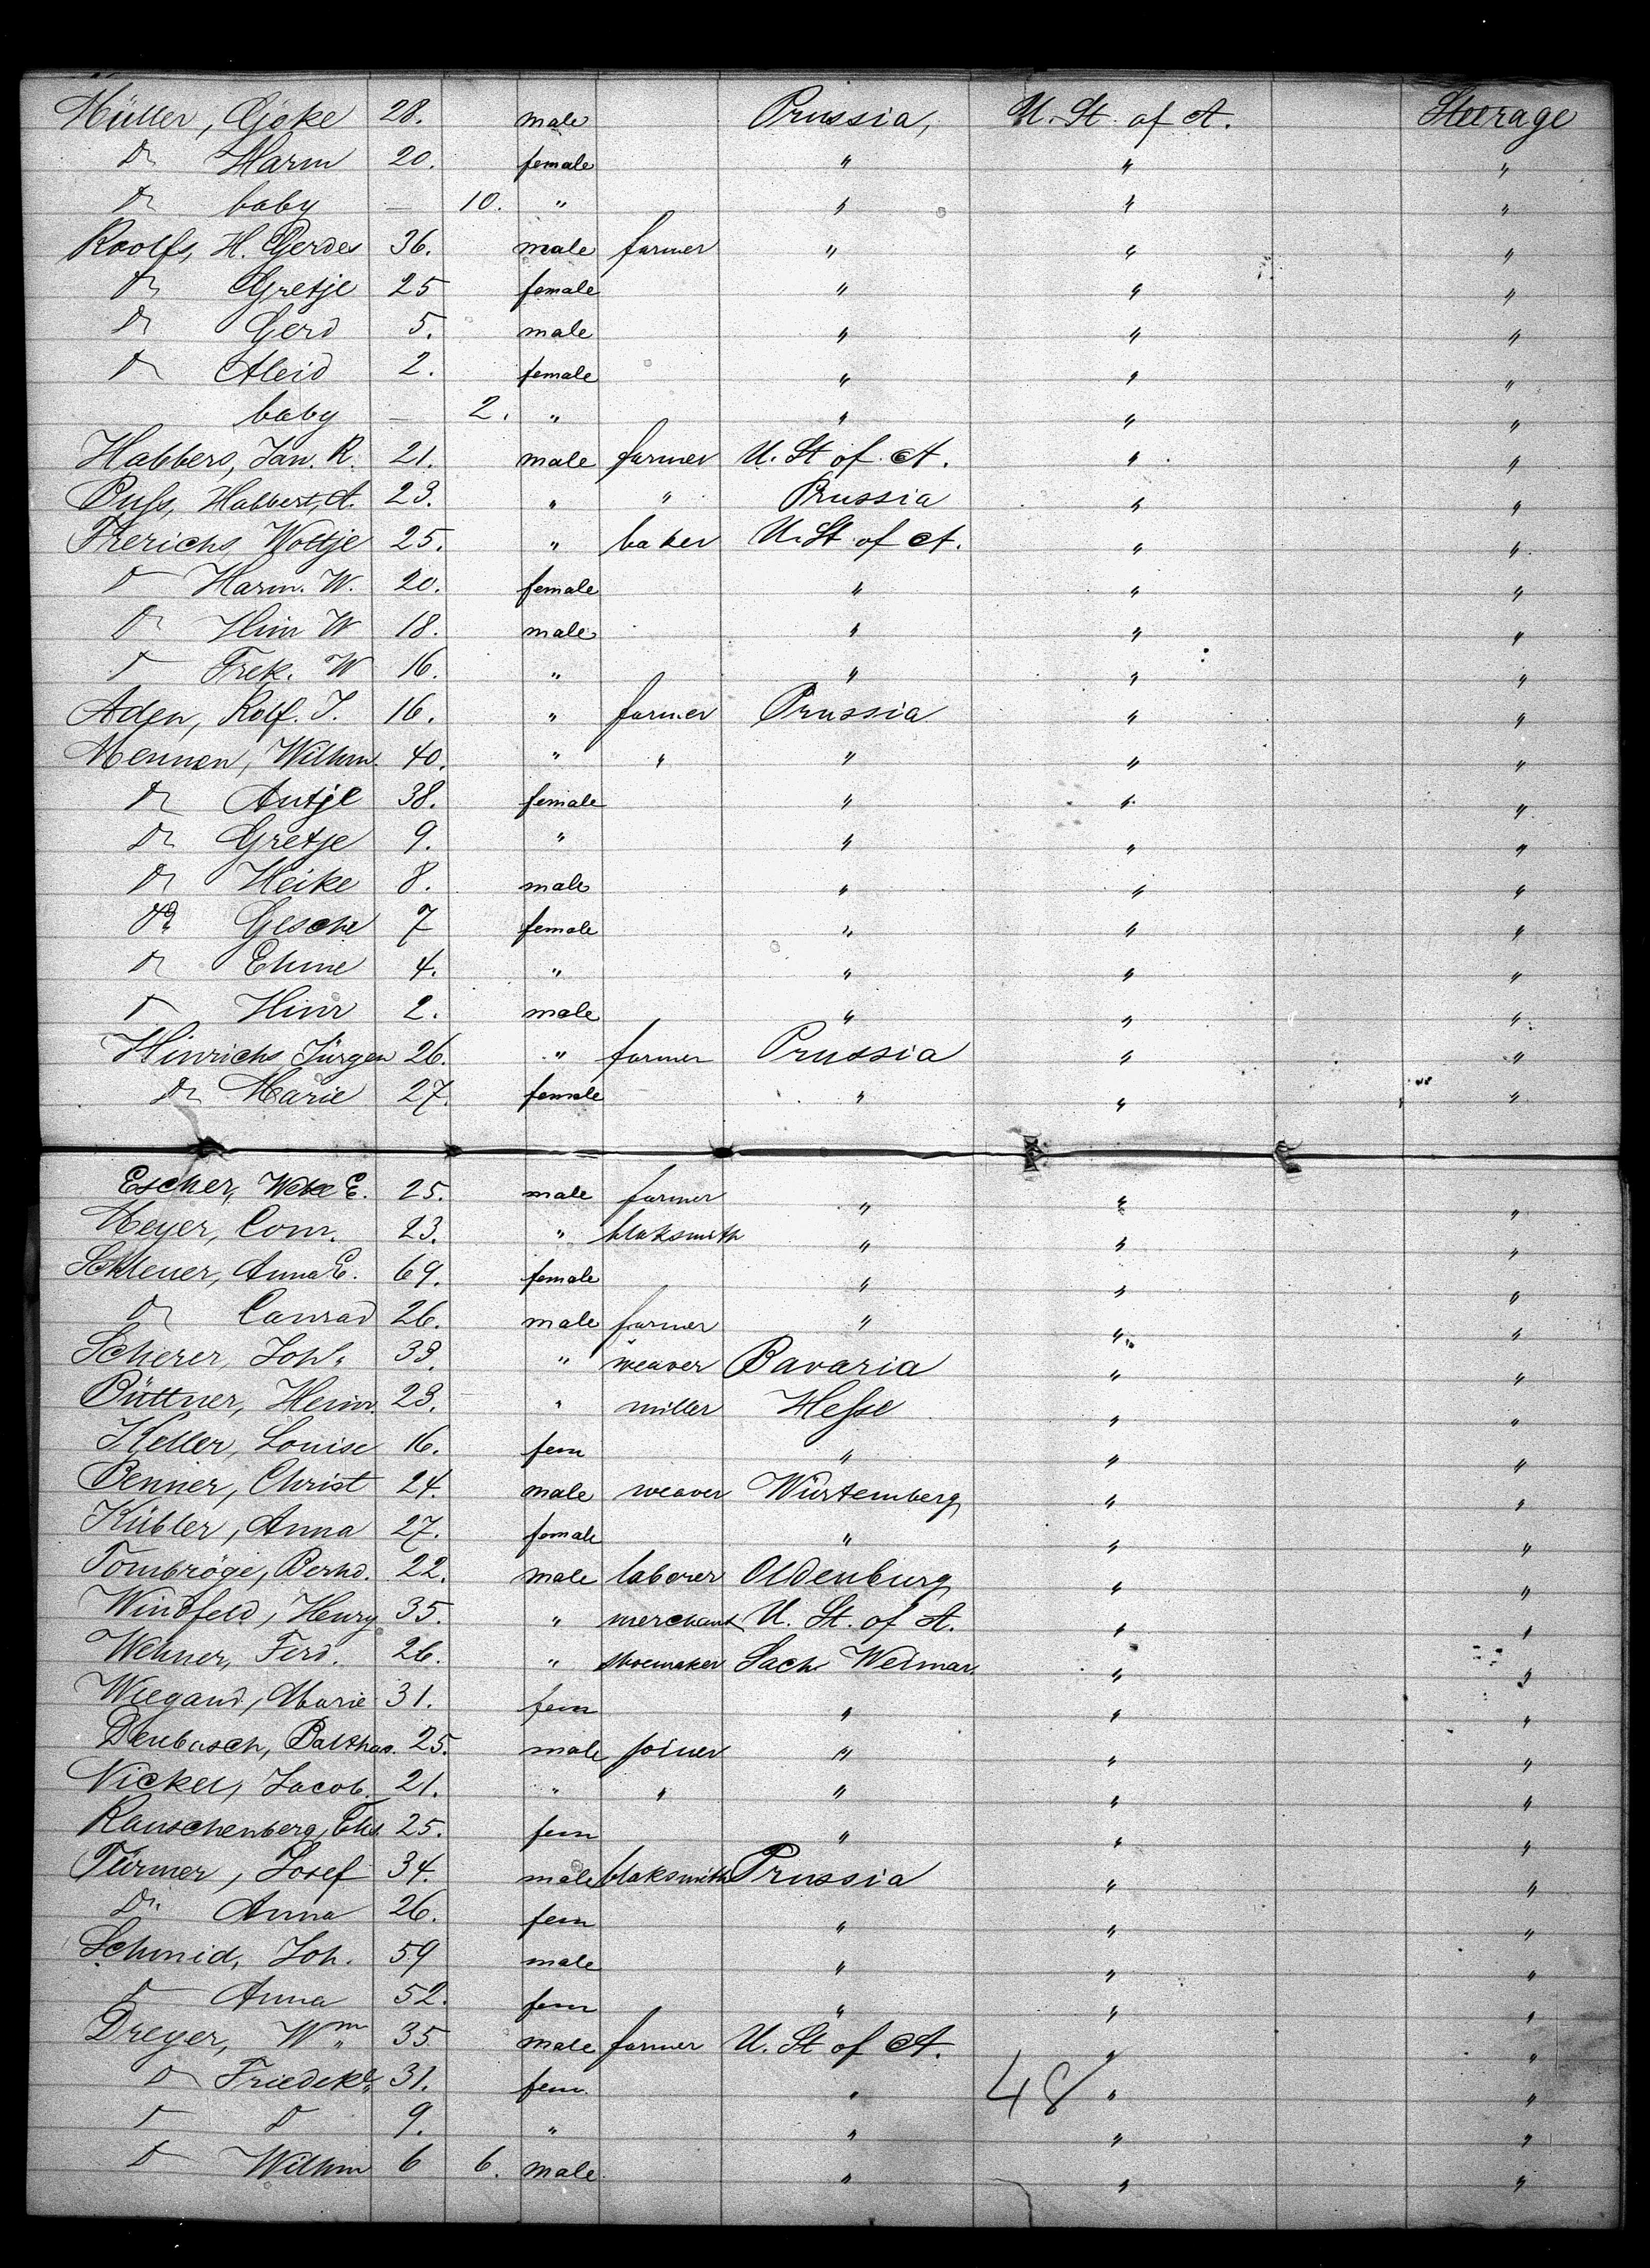 Müller, Gjöke 28. male Prussia, U. St. of A. Steerage
Do Harm 20. female " " "
Do baby — 10. " " " "
Roolfs, H. Gerdes 36. male farmer " " "
Do Gretje 25 female " " "
Do Gerd 5. male " " "
Do Aleid 2. female " " "
baby — 2. " " " "
Habbers, Jan. R. 21. male farmer U. St of A. " "
Buss, Habbert, A. 23. " " Prussia " "
Frerichs, Woltje 25. " baker U. St of A. " "
Do Harm. W. 20. female " " "
Do Hinr W 18. male " " "
Do Frek. W 16. " " " "
Aden, Rolf. J. 16. " farmer Prussia " "
Mennen, Wilhm. 40. " " " " "
Do Antje 38. female " " "
Do Gretje 9. " " " "
Do Heike 8. male " " "
Do Gesche 7 female " " "
Do Ehme 4. " " " "
Do Hinr 2. male " " "
Hinrichs Jürgen 26. " farmer Prussia " "
Do Marie 27. female " " "
Escher, E. 25. male farmer " " "
Meyer, Conr. 23. " blaksmith " " "
Schleuer, Anna E. 69. female " " "
Do Conrad 26. male farmer " " "
Scherer, Joh. 33. " weaver Bavaria " "
Büttner, Heinr. 23. " miller Hesse " "
Keller, Louise 16. fem " " "
Benner, Christ 24. male weaver Würtemberg " "
Kübler, Anna 27. female " " "
Tombröge, Bernd. 22. male laborer Oldenburg " "
Windfeld, Henry 35. " merchant U. St. of A. " "
Wehner, Ferd. 26. " shoemaker Sach Weimar " "
Wiegand, Marie 31. fem " " "
Deubasch, Balthas. 25. male joiner " " "
Nickel, Jacob. 21. " " " " "
Rauschenberg, Elis. 25. fem " " "
Türmer, Josef 34. male blaksmith Prussia " "
Do Anna 26. fem " " "
Schmid, Joh. 59 male " " "
Do Anna 52. fem " " "
Dreyer, Wm 35 male farmer U. St of A. " "
Do Friedeke 31. fem. " 48 " "
Do Do 9. " " " "
Do Wilhm 6 6. male " " "